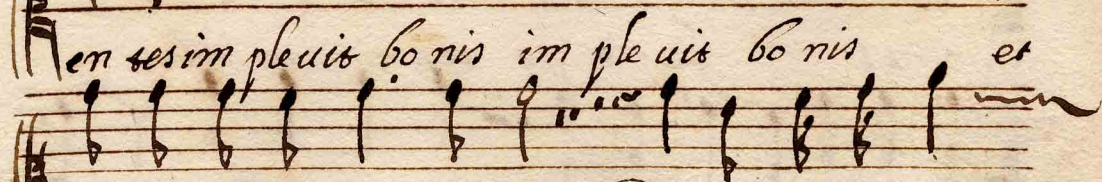 en tes im ple uit bo nis im ple uit bo nis et